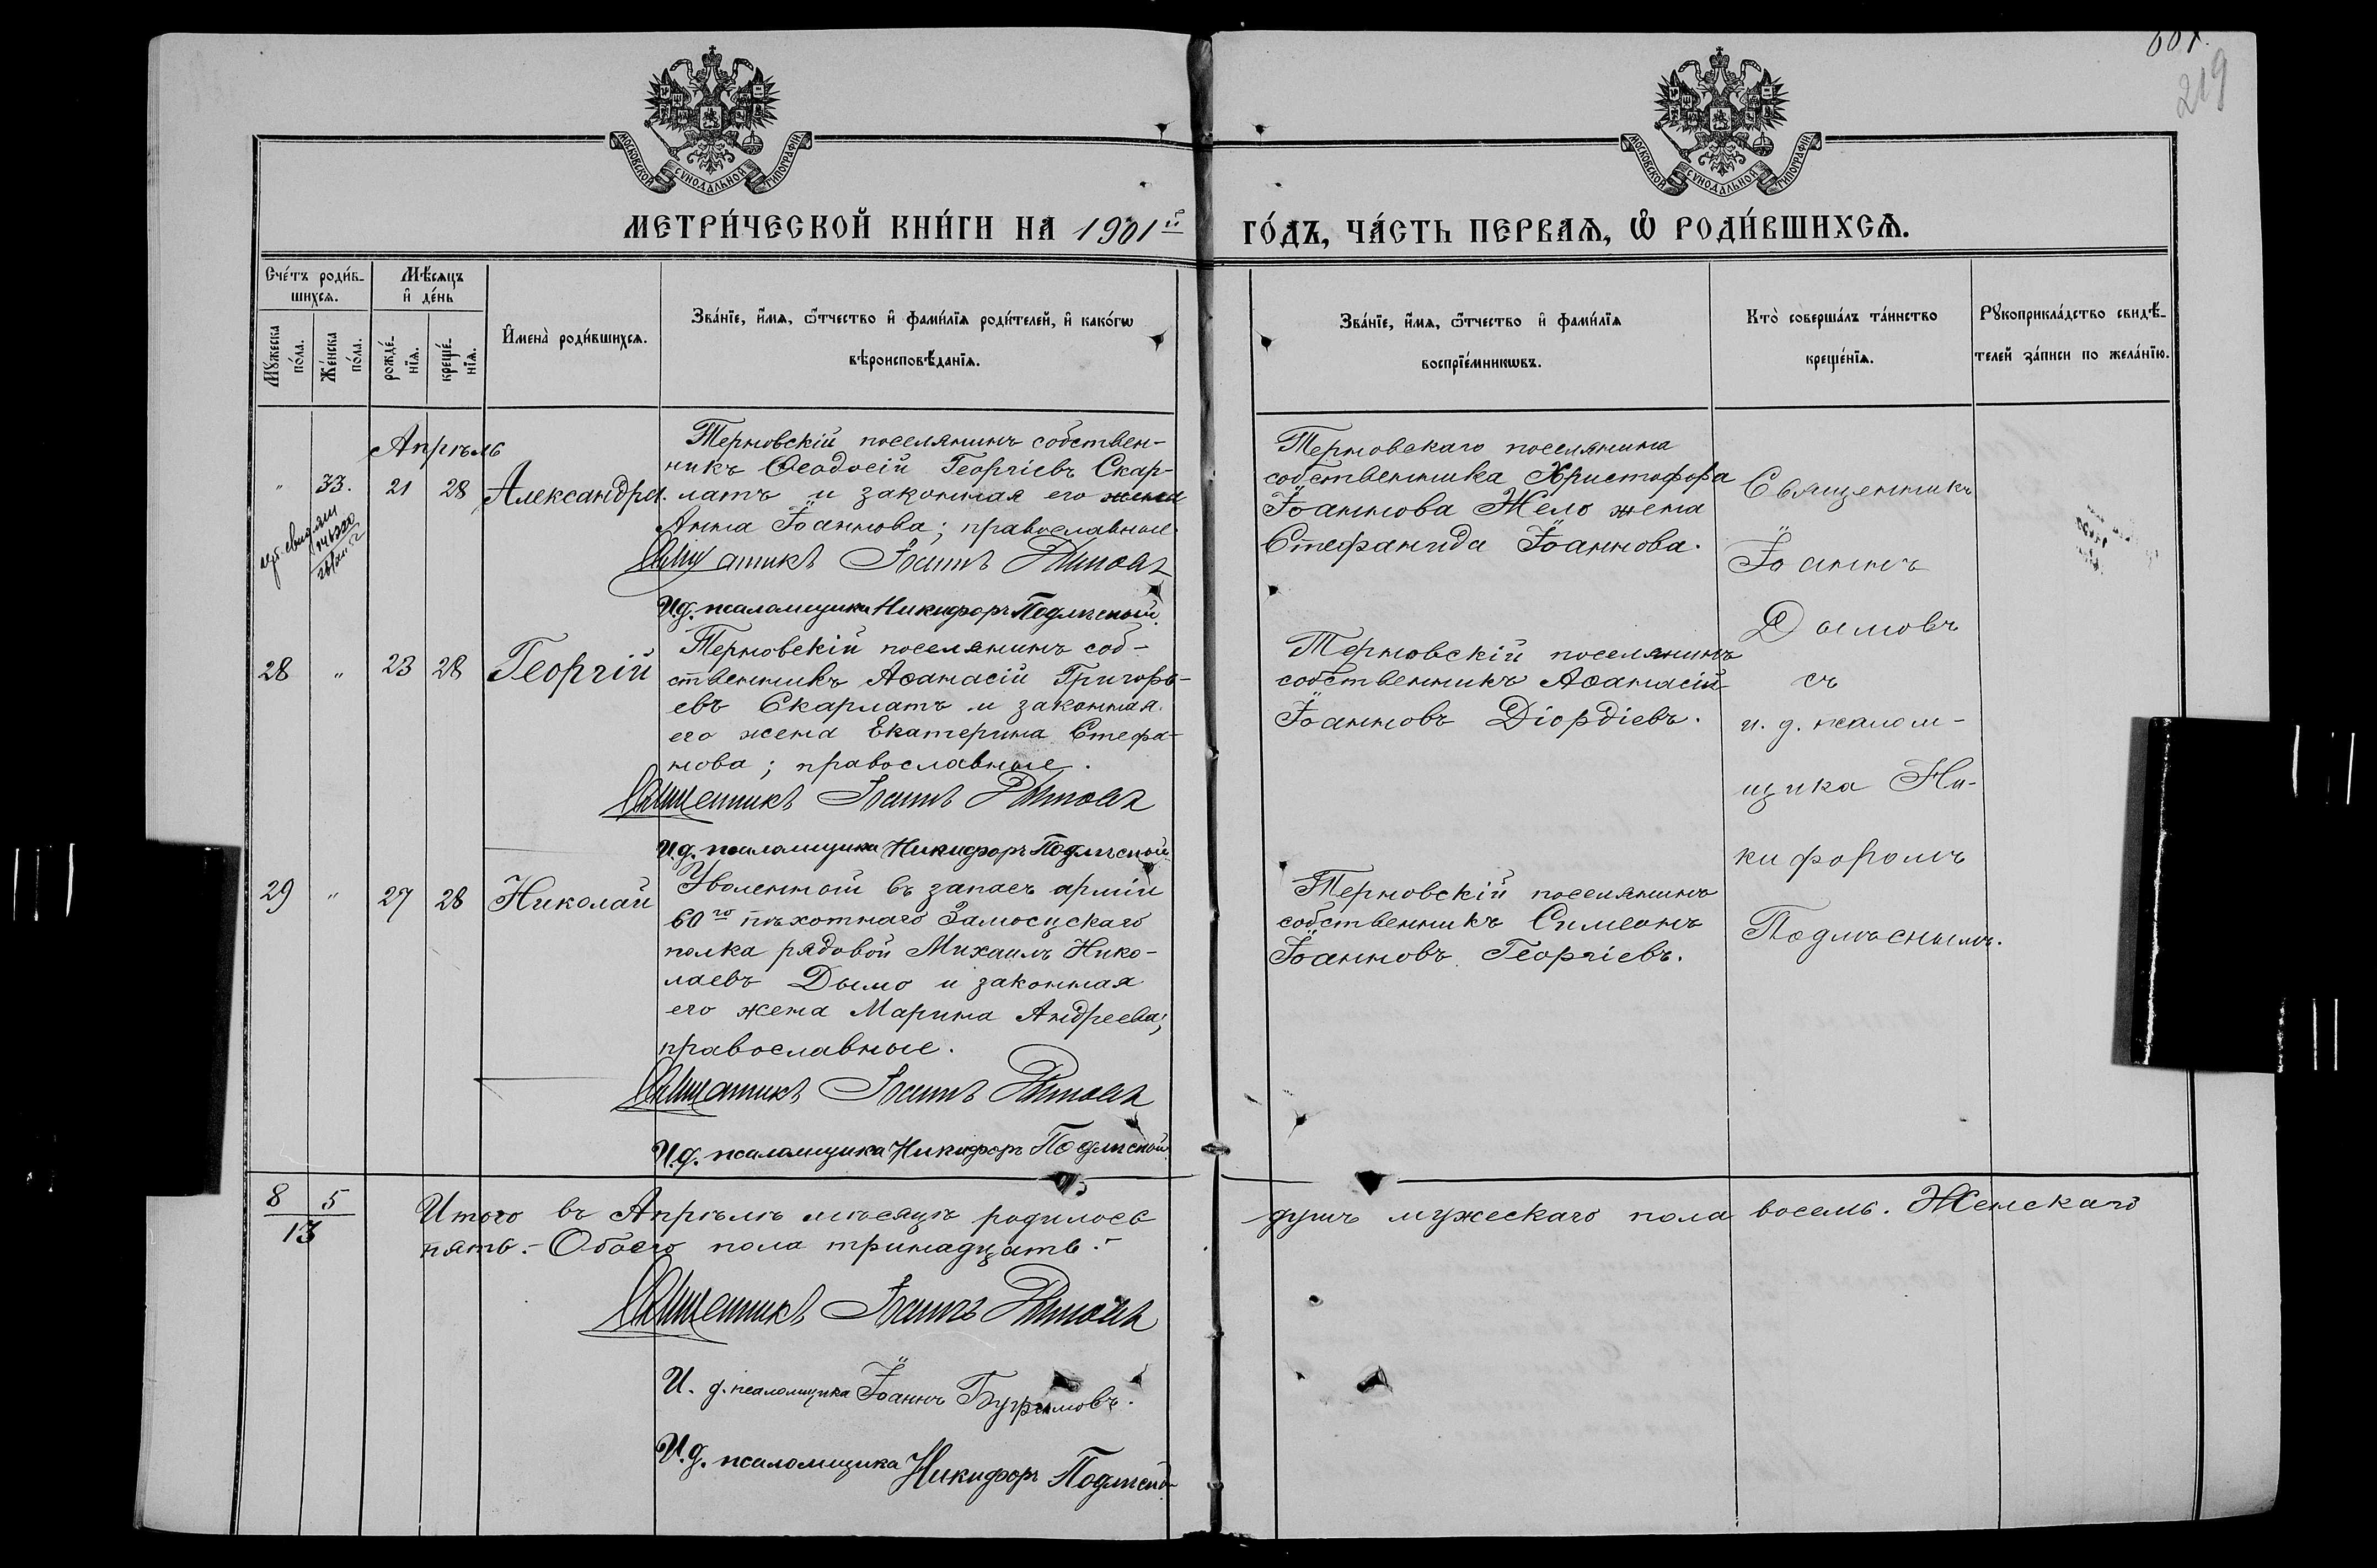 219
МОСКОВСКОЙ СѴНОДАЛЬНОЙ ТИПОГРАФІИ.
МОСКОВСКОЙ СѴНОДАЛЬНОЙ ТИПОГРАФІИ.
МЕТРИ́ЧЕСКОЙ КНИ́ГИ НА 1901й ГО́ДЪ, ЧА́СТЬ ПЕРВАѦ, Ѡ҆ РОДИ́ВШИХСѦ.
Сче́тъ роди́в-
шихсѧ.
Мꙋ́жеска
по́ла.
Же́нска
по́ла.
Мѣ́сѧцъ
и҆ де́нь
рожде́-
нїѧ.
креще́-
нїѧ.
И҆мена̀ роди́вшихсѧ.
Зва́нїе, и҆́мѧ, ѻ҆́тчество и҆ фами́лїѧ роди́телей, и҆ како́гѡ
вѣроисповѣ́данїѧ.
Зва́нїе, и҆́мѧ, ѻ҆́тчество и҆ фами́лїѧ
воспрїе́мникѡвъ.
Кто̀ соверша́лъ та́инство
креще́нїѧ.
Рꙋкоприкла́дство свидѣ́-
телей за́писи по жела́нїю.
Апрѣль
" 33. 21 28 Александра.
Терновскій поселянинъ собствен-
никъ Ѳеодосій Георгіевъ Скар-
латъ и законная его жена
Анна Іоаннова; православные.
Священникъ Іоаннъ Дымовъ
И.д. псаломщика Никифоръ Подлѣсный.
Терновскаго поселянина
собственника Христофора
Іоаннова Жело жена
Стефанида Іоаннова.
28 " 23 28 Георгій
Терновскій поселянинъ соб-
ственникъ Аѳанасій Григорь-
евъ Скарлатъ и законная
его жена Екатерина Стефа-
нова; православные.
Священникъ Іоаннъ Дымовъ
И.д. псаломщика Никифоръ Подлѣсный.
Терновскій поселянинъ
собственникъ Аѳанасій
Іоанновъ Діордіевъ.
29 " 27 28 Николай
Уволенный въ запасъ арміи
60го пѣхотнаго Замосцскаго
полка рядовой Михаилъ Нико-
лаевъ Дымо и законная
его жена Марина Андреева;
православные.
Священникъ Іоаннъ Дымовъ
И.д. псаломщика Никифоръ Подлѣсный.
Терновскій поселянинъ
собственникъ Симеонъ
Іоанновъ Георгіевъ.
Священникъ
Іоаннъ
Дымовъ
съ
и. д. псалом-
щика Ни-
кифоромъ
Подлѣснымъ.
8 5
13
Итого въ Апрѣлѣ мѣсяцѣ родилось душъ мужескаго пола восемь. Женскаго
пять.- Обоего пола тринадцать.-
Священникъ Іоаннъ Дымовъ
И. д. псаломщика Іоаннъ Бугримовъ.
И.д. псаломщика Никифоръ Подлѣсный